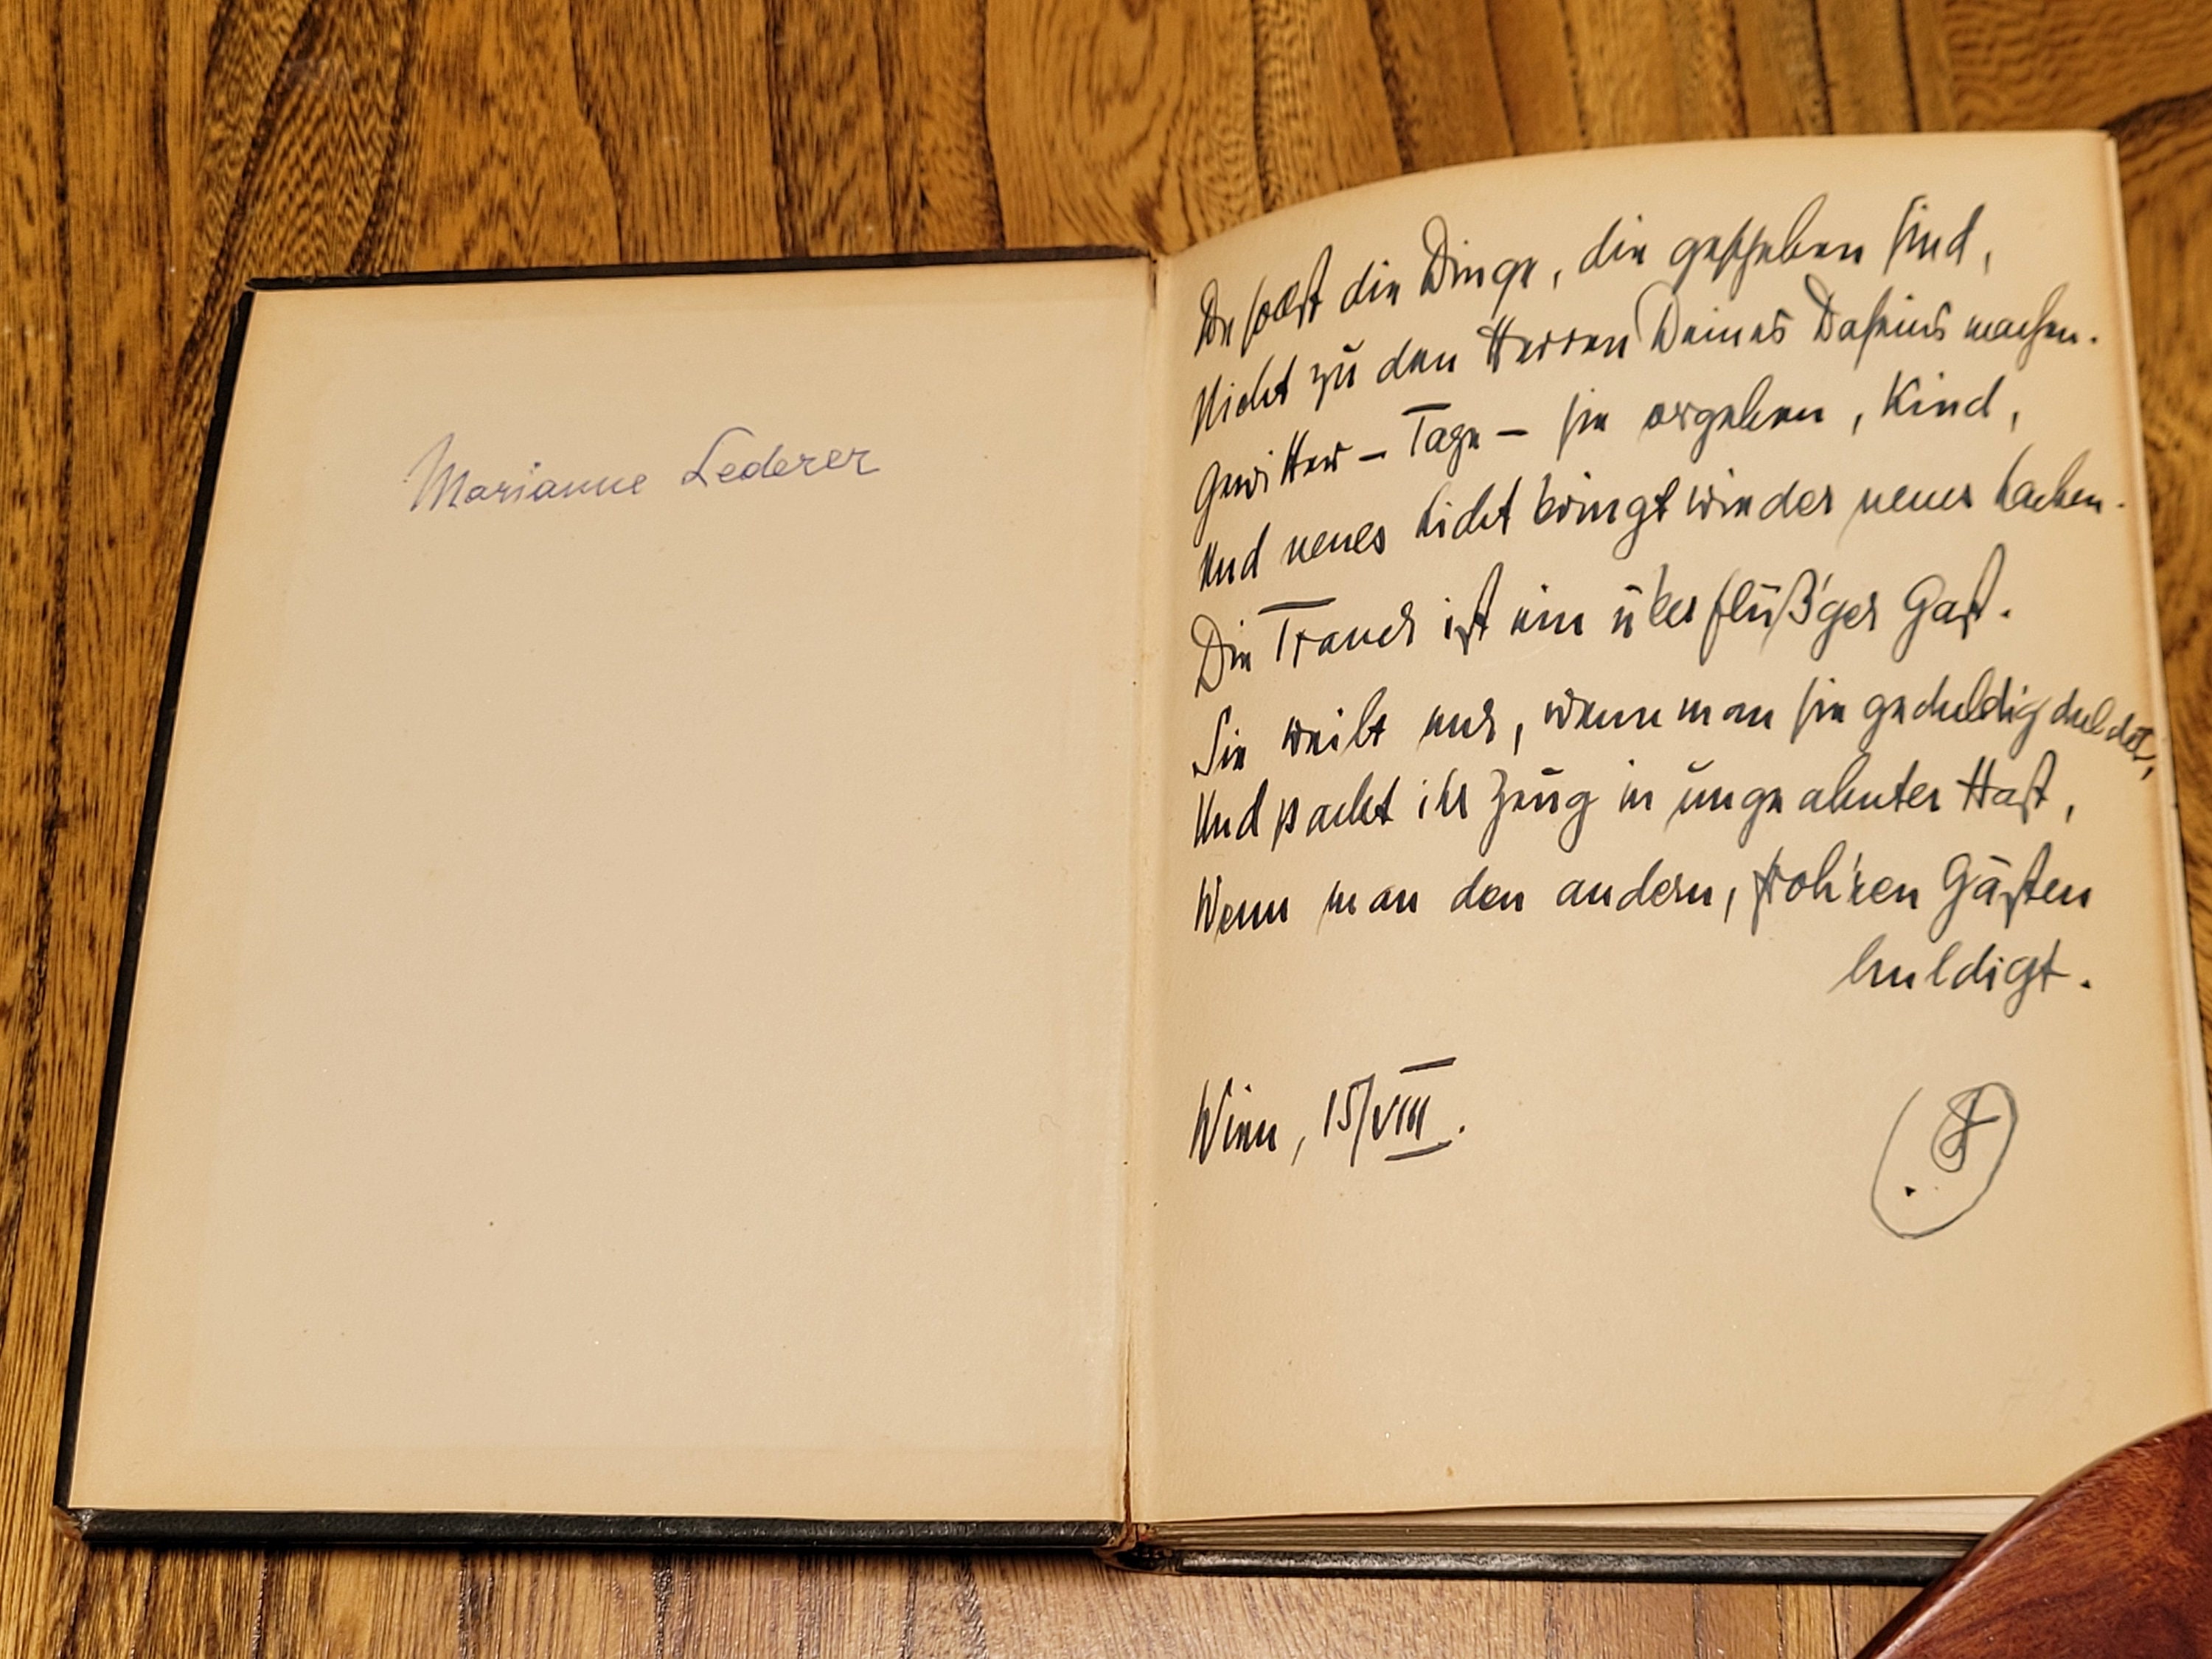 Marianne Lederer
Du sollst die Dinge, die geschehen sind,
Nicht zu den Herren Deines Daseins machen.
Gewitter-Tage - sie vergehen, Kind,
Und neues Licht bringt wieder neues Lachen.
Die Trauer ist ein überflüß'ger Gast.
Sie weilt nur, wenn man sie geduldig duldet,
Und packt ihr Zeug in ungeahnter Hast,
Wenn man den andern, froh'ren Gästen
huldigt.
Wien, 15/VIII.